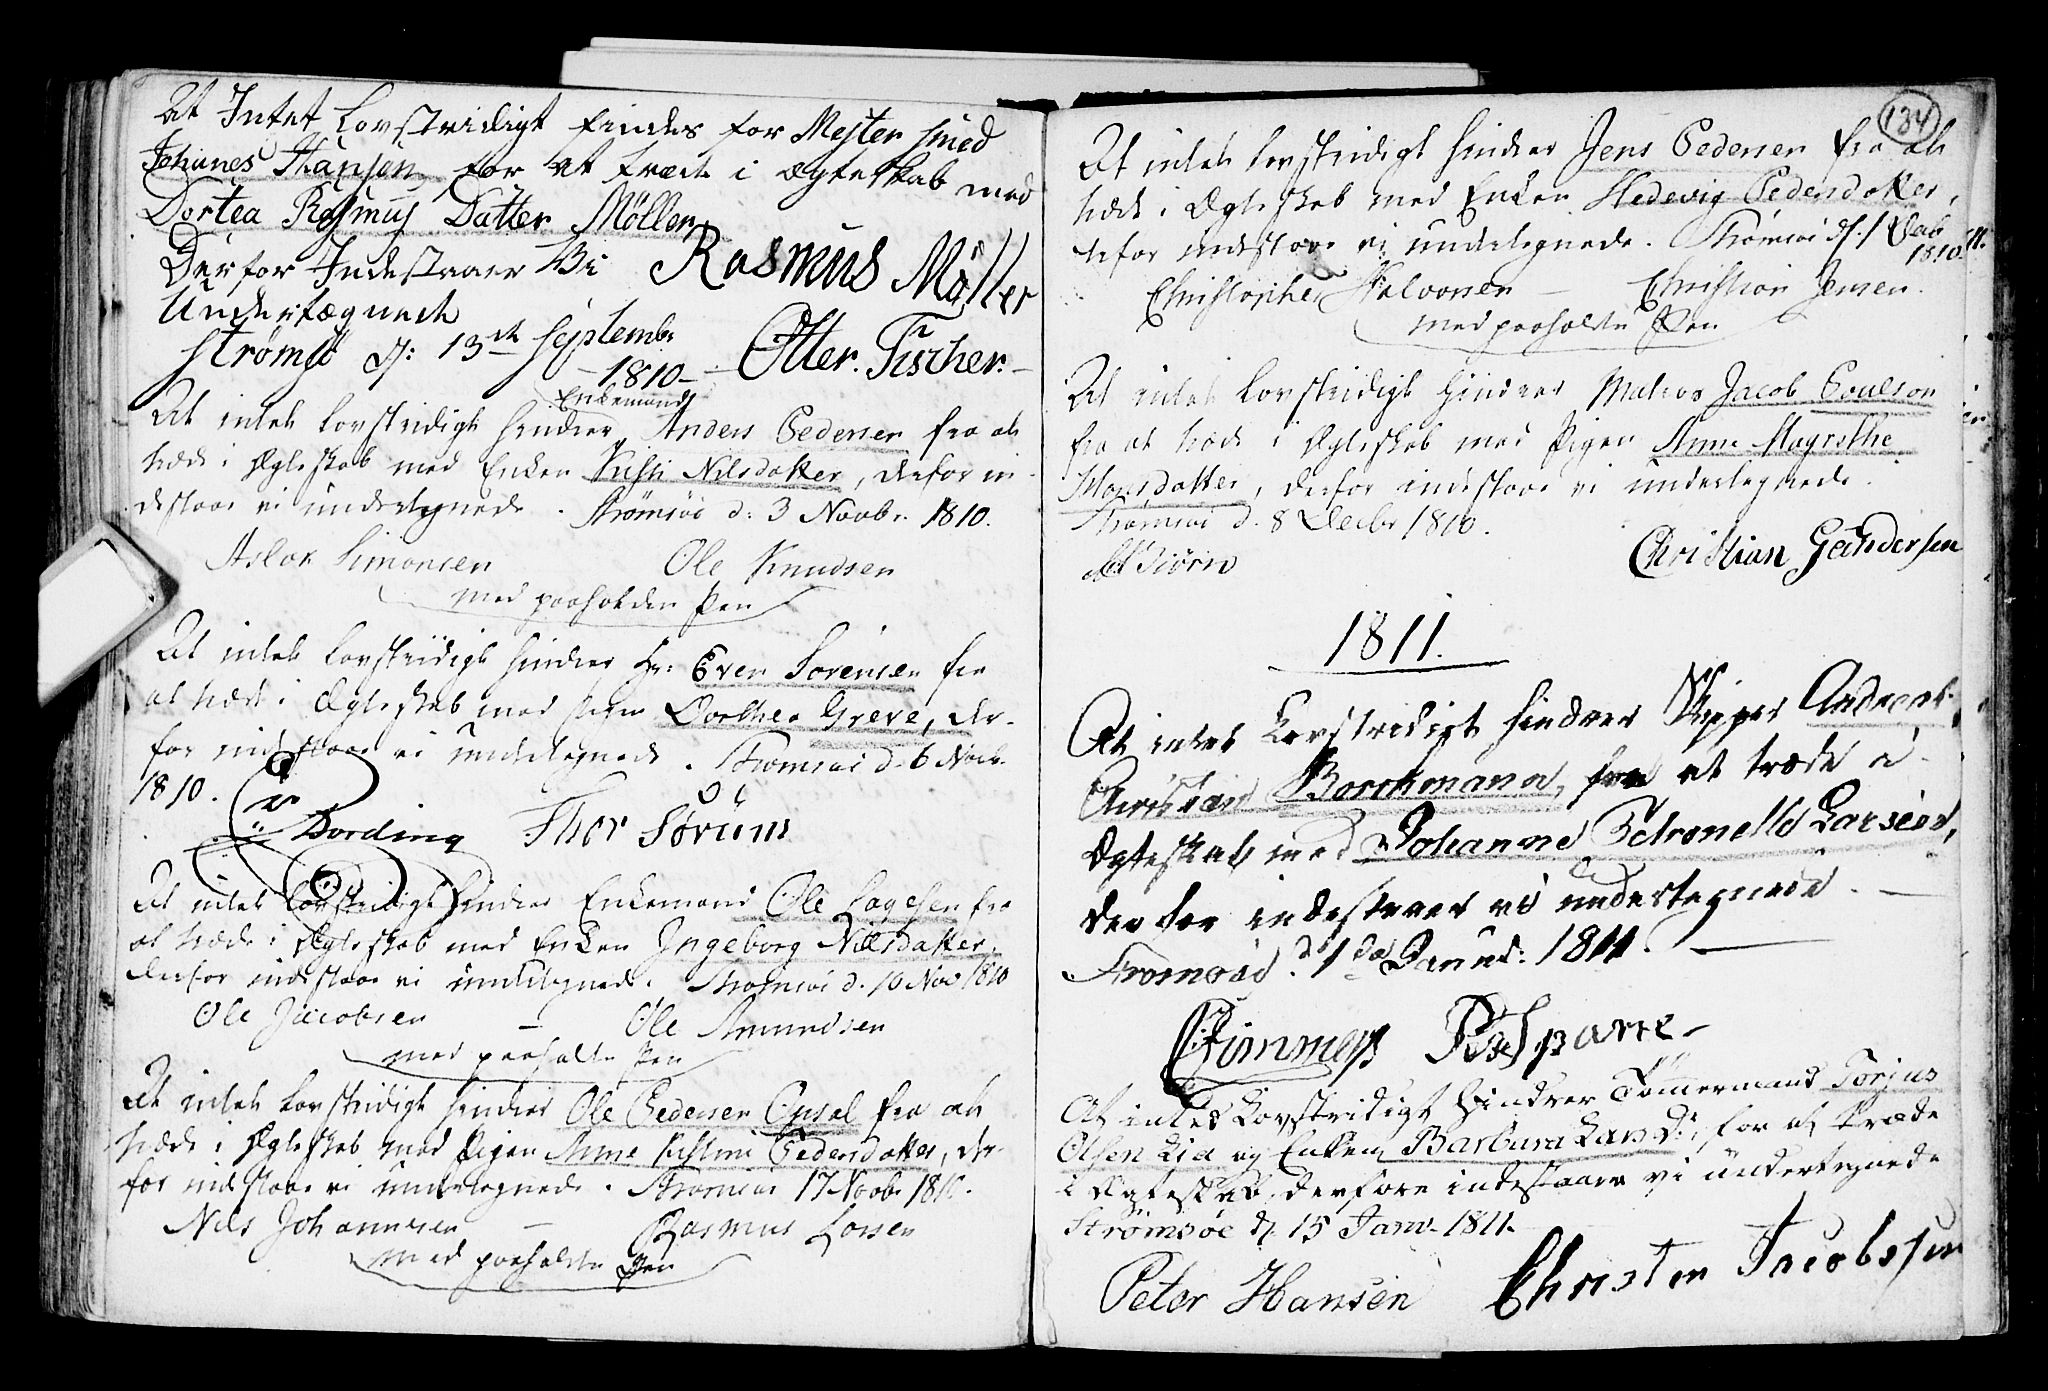 At Intet Lovstridigt findes for Mester smed
Johanes Hansen, for at træde i ægteskab med
Dortea Rasmus Datter Møller
Derfor Indestaaer Vi
Undertægnede
Rasmus Møller
Strømsø d: 13de Septembr
- 1810 -
Otter. Fischer.
Enkemand
At intet lovstridigt hindrer Anders Pedersen fra at
træde i Ægteskab med Enken Kisti Nilsdatter, derfor in-
destaae vi undertegnede. Strømsøe d: 3 Novbr. 1810.
Aslak Simonsen Ole Knudsen
med paaholden Pen
At intet lovstridigt hindrer Hr: Even Sorensen fra
at træde i Ægteskab med Pigen Dorthea Greve, der-
for indestaae vi undertegnede. Strømsøe d. 6 Novb.
1810.
Dording Thor Sørum
At intet lovstridigt hindrer Enkemand Ole Lagesen fra
at træde i Ægteskab med Enken Ingeborg Nilsdatter,
derfor indestaae vi undertegnede. Strømsøe d. 10 Nov 1810
Ole Jacobsen - Ole Amundsen
med paaholdte Pen
At intet lovstridigt hindrer Ole Pedersen Opsal fra at
træde i Ægteskab med Pigen Anne Kistine Pedersdatter, der-
for indestaae vi undertegnede. Strømsøe 17 Novbr 1810.
Nils Johannesen - Rasmus Larsen
med paaholdte Pen
134
At intet lovstridigt hindrer Jens Pedersen fra at
træde i Ægteskab med Enken Hedevig Pedersdatter,
derfor indestaae vi undertegnede. Strømsøe d. 1 Decb
1810.
Christopher Halvorsen - Christian Jensen.
med paaholdte Pen
At intet lovstridigt hindrer Matros Jacob Poulson
fra at træde i Ægteskab med Pigen Anne Magrethe
Hansdatter, derfor indestaae vi undertegnede.
Strømsøe d. 8 Decbr 1810.
Biørn Christian Gundersen
1811.
At intet Lovstridigt hindrer Skipper Andreas
Christian Borchmann, fra at træde i
Ægteskab med Johanne Petronelle Larsen,
derfor indestaaer vi undertegnede. -
Strømsøe d. 1de Janud: 1811.
At intet Lovstridigt Hindrer Tømmermand Torjus
Olsen Lia og Enken Barbara Land:, for at træde
i Ægteskab, derfore indestaaer vi undertegnede
Strømsøe d. 15 Janv. 1811.
Peter Hansen Christen Jacobssen